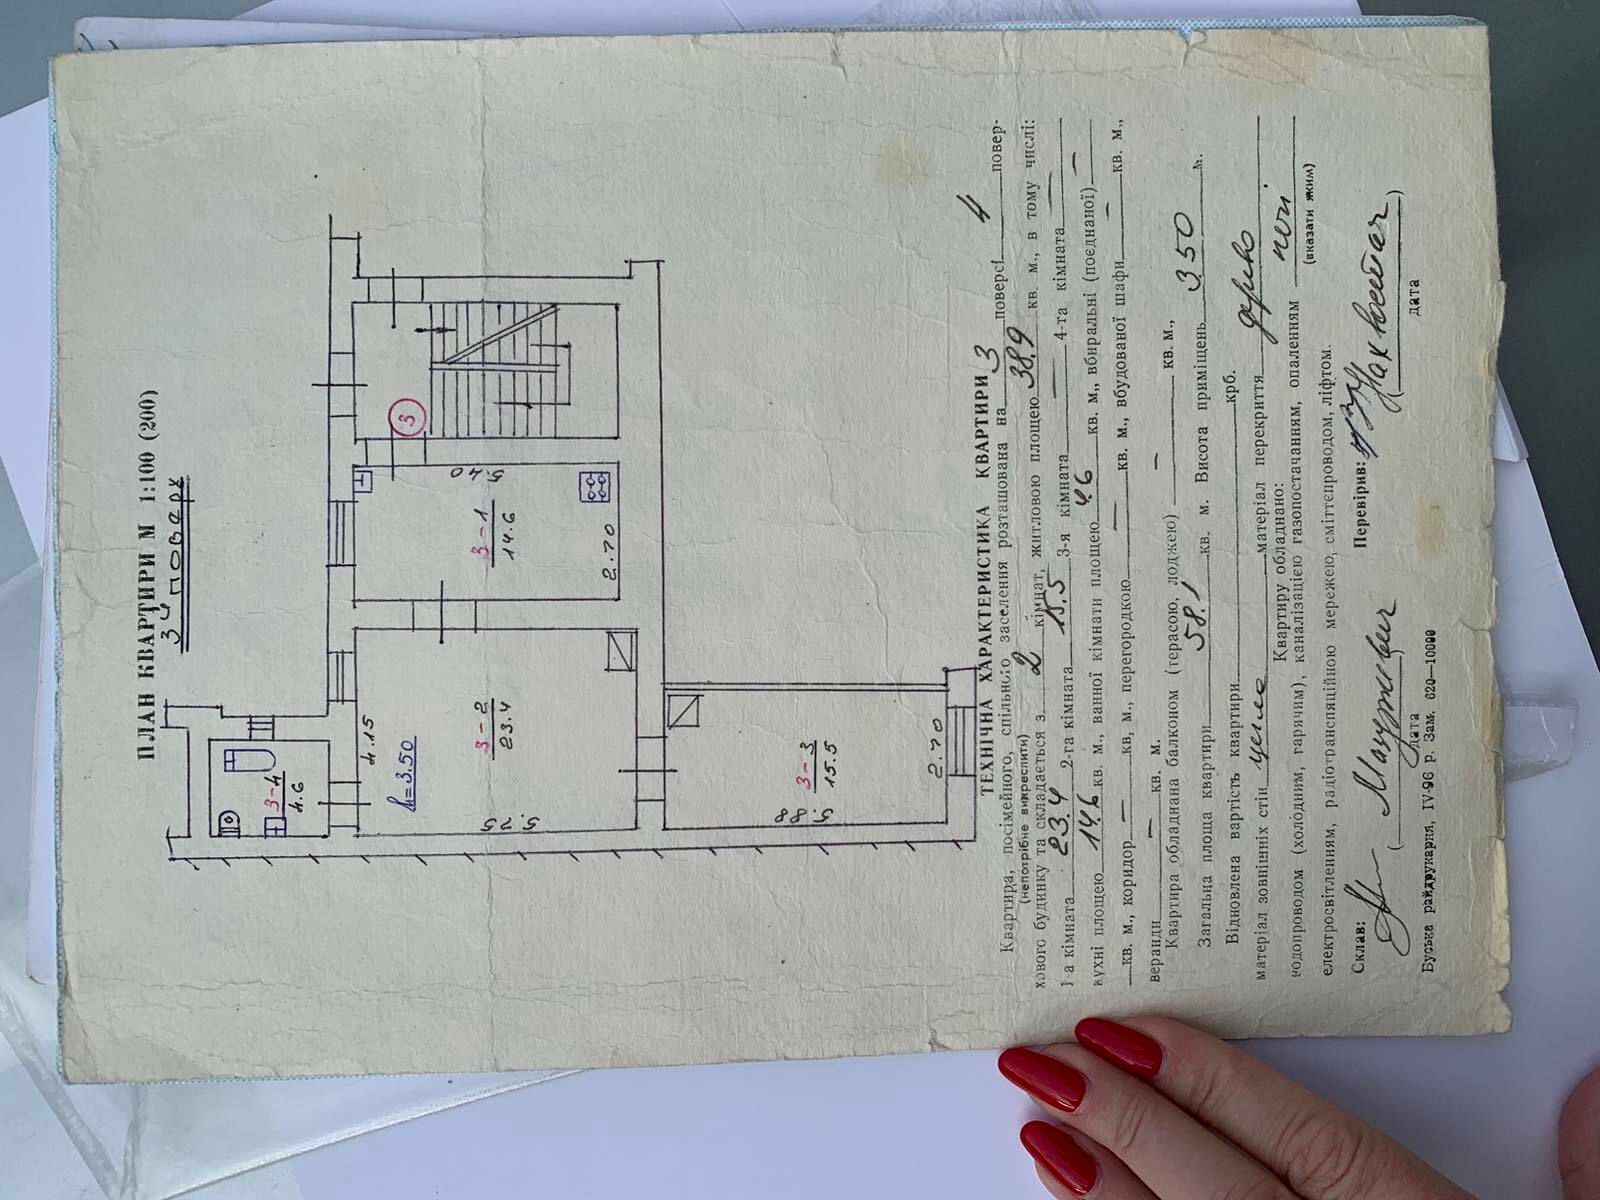 ПЛАН КВАРТИРИ М 1:100 (200)
3й поверх
3-4
4.6
4.15
h=3.50
3-2
23.4
5.75
3-1
14.6
5.40
2.70
3
3-3
15.5
5.88
2.70
ТЕХНІЧНА ХАРАКТЕРИСТИКА КВАРТИРИ 3
Квартира, посімейного, спільного заселення розташована на 3 поверсі 4 повер-
(непотрібне викреслити)
хового будинку та складається з 2 кімнат, житловою площею 38.9 кв. м., в тому числі:
1-а кімната 23.4 2-га кімната 15.5 3-я кімната — 4-та кімната —
кухні площею 14.6 кв. м., ванної кімнати площею 4.6 кв. м., вбиральні (поєднаної) —
— кв. м., коридор — кв, м., перегородкою — кв. м., вбудованої шафи — кв. м.,
веранди — кв. м.
Квартира обладнана балконом (терасою, лоджею) — кв. м.,
Загальна площа квартири 58.1 кв. м. Висота приміщень 3.50 м.
Відновлена вартість квартири крб.
матеріал зовнінніх стін цегла матеріал перекриття дерево
Квартиру обладнано:
водопроводом (холодним, гарячим), каналізацією газопостачанням, опаленням печі
(вказати яким)
електроосвітленням, радіотрансляційною мережею, сміттєпроводом, ліфтом.
Склав: Перевірив:
( Мацуткевич ) ( )
дата дата
Буська райдрукарня, IV-96 р. Зам. 620—10000